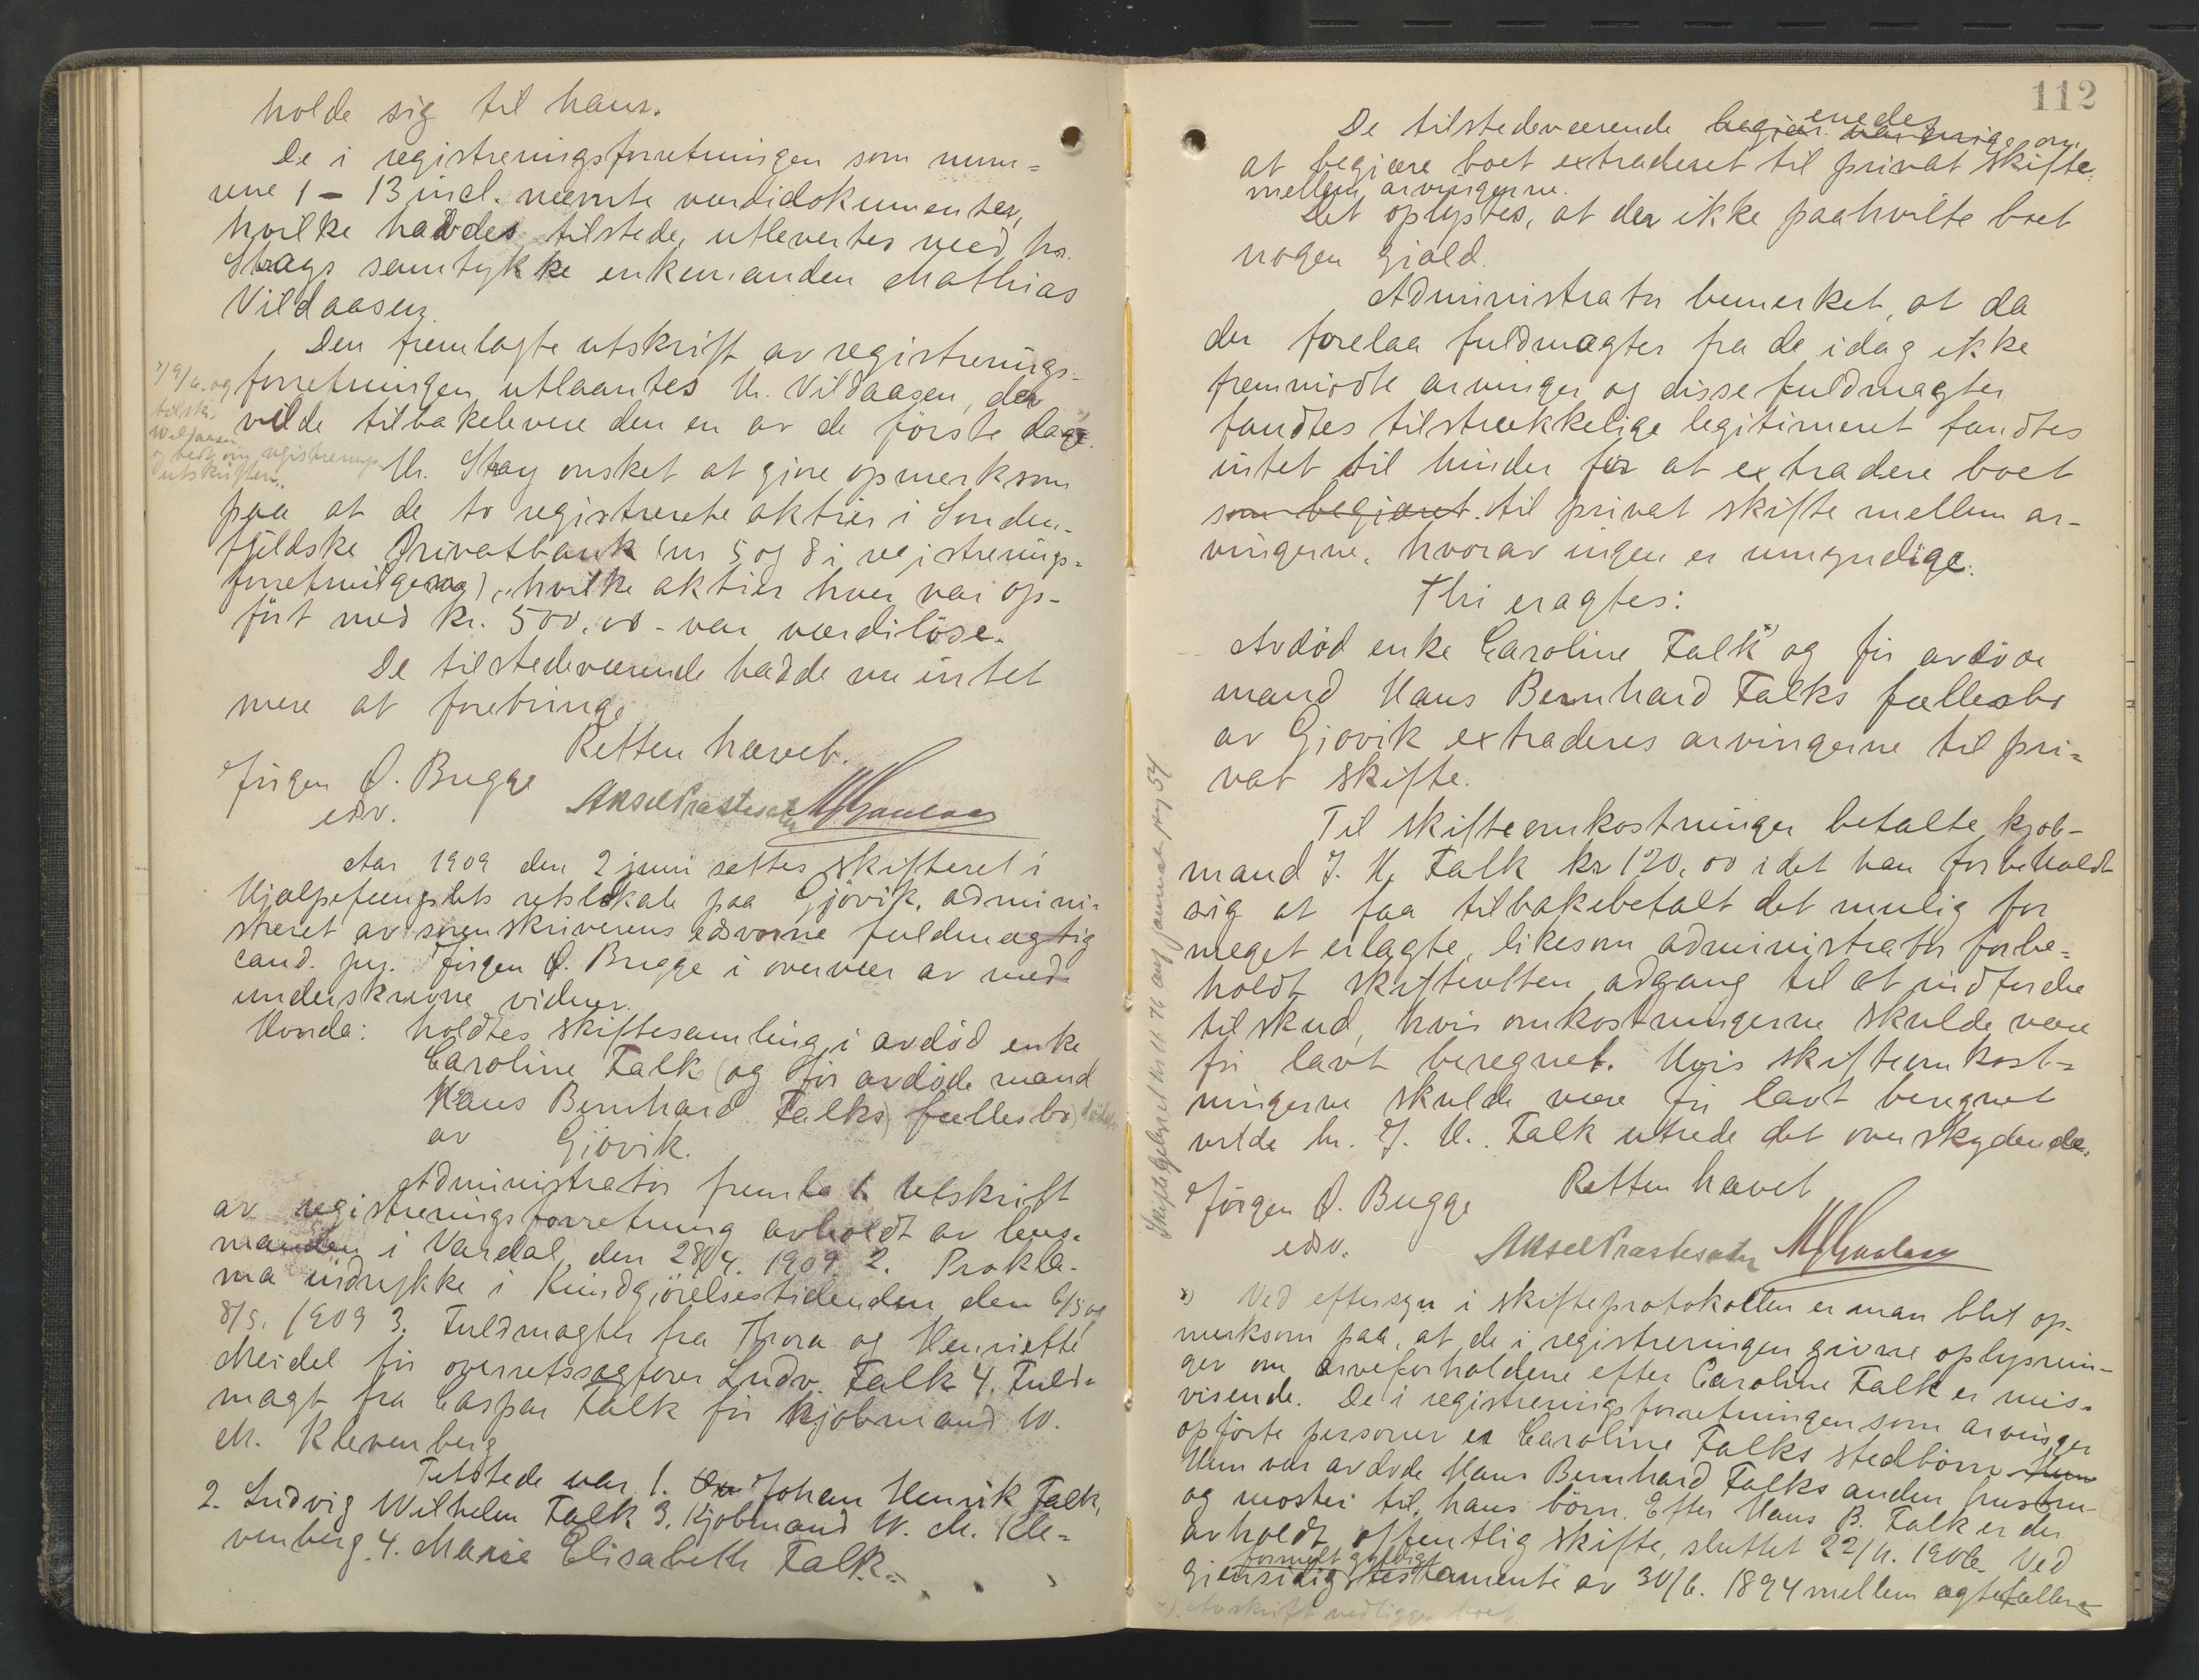 holde sig til hans.
De i registreringsforretningen som num=
rene 1 – 13 incl. nævnte værdidokumenter,
hvilke havdes tilstede, utlevertes med hr.
Strags samtykke enkemanden Mathias
Vildaasen.
Den fremlagte utskrift av registrerings=
forretningen utlaantes Hr. Vildaasen, der
vilde tilbakelevere den en av de förste dage.
Hr. Stag ønsket at gjøre opmerksom
paa at de to registrerete aktier i Sönden-
fjeldske Privatbank (nr 5 og 8 i registrerings=
forretningen), hvilke aktier hver var op-
fört med kr. 500,00 - var værdilöse.
De tilstedeværende hadde nu intet
mere at forebringe
Retten hævet.
Jörgen Ø. Bugge
edsv.
Aksel Præstesæter
Aar 1909 den 2 juni sattes skifteret i
Hjælpefængslets retslokale paa Gjövik, admini-
streret av sorenskriverens edsvorne fuldmægtig
cand. jur. Jörgen Ø. Bugge i overvær av med-
underskrevne vidner.
Hvorda: holdtes skiftesamling i avdöd enke
Caroline Falk (og för avdöde mand
Hans Bernhard Falks) fællesbo
av Gjövik.
Administrator fremla 1. Utskrift
av registreringsforretning avholdt av lens-
manden i Vardal den 28/4. 1909 2. Prokla-
ma indrykke i Kundgjörelsestidenden den 6/5 og
8/5. 1909 3. Fuldmagter fra Thora og Henriette
Meidel for overretssagförer Ludv. Falk 4. Fuld=
magt fra Caspar Falk for kjøbmand W.
M. Klevenberg
Tilstede var 1. Johan Henrik Falk,
2. Ludvig Wilhelm Falk 3. Kjøbmand W. M. Kle=
venberg 4. Marie Elisabeth Falk.
112
De tilstedeværende begjær. var enige om enedes
at begjære boet extraderet til privat skifte
mellem arvingerne.
Det oplystes, at der ikke paahvilte boet
nogen gjæld.
Administrator bemerket, at da
der forelaa fuldmagter fra de idag ikke
fremmödte arvinger og disse fuldmagter
fandtes tilstrækkelige legitimeret fandtes
intet til hinder for at extradere boet
som begjæret. til privat skifte mellem ar-
vingerne, hvorav ingen er umyndige.
Thi eragtes:
Avdöd enke Caroline Falk x) og för avdöde
mand Hans Bernhard Falks fællesbo
av Gjövik extraderes arvingerne til pri=
vat skifte.
Til skifteomkostninger betalte kjøb-
mand J. H. Falk kr 120,00 idet han forbeholdt
sig at faa tilbakebetalt det mulig for
meget erlagte, likesom administrator forbe=
holdt skifteretten adgang til at indfordre
tilskud, hvis omkostningerne skulde være
for lavt beregnet. Hvis skifteomkost=
ningerne skulde være for lavt beregnet
vilde hr. J. H. Falk utrede det overskydende.
Retten hævet
Jörgen Ø. Bugge
edsv.
Aksel Præstesæter
x) Ved eftersyn i skifteprotokollen er man blit op-
merksom paa, at de i registreringen givne oplysnin-
ger om arveforholdene efter Caroline Falk er mis-
visende. De i registreringsforretningen som arvinger
opførte personer er Caroline Falks stedbörn. Hun
Hun var avdøde Hans Bernhard Falks anden hustru
og moster til hans börn. Efter Hans B. Falk er der
avholdt offentlig skifte, sluttet 22/11. 1906. Ved
formelt gyldigt
gjensidig testamente av 30/6. 1894 mellem ægtefællerne
Avskrift vedligger boet.